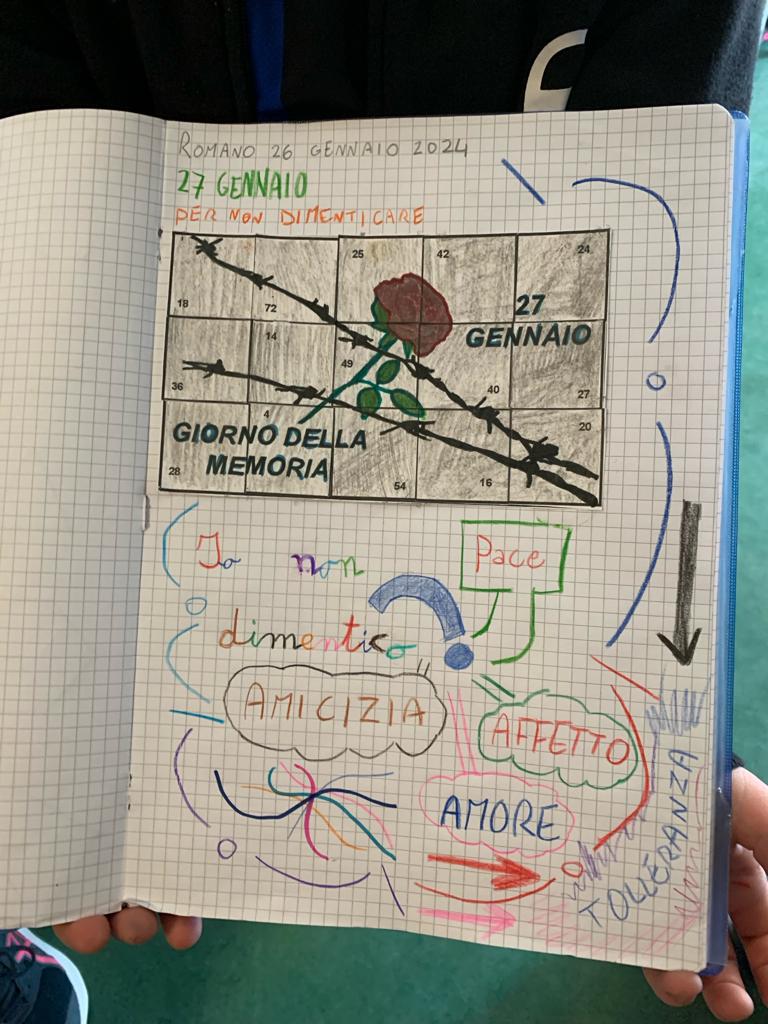 ROMANO 26 GENNAIO 2024
27 GENNAIO
PER NON DIMENTICARE
25 42 24
18 72
27
GENNAIO
14
49
36 40 27
4 20
GIORNO DELLA
MEMORIA
28 54 16
Io non
dimentico
Pace
AMICIZIA
AFFETTO
AMORE
TOLLERANZA